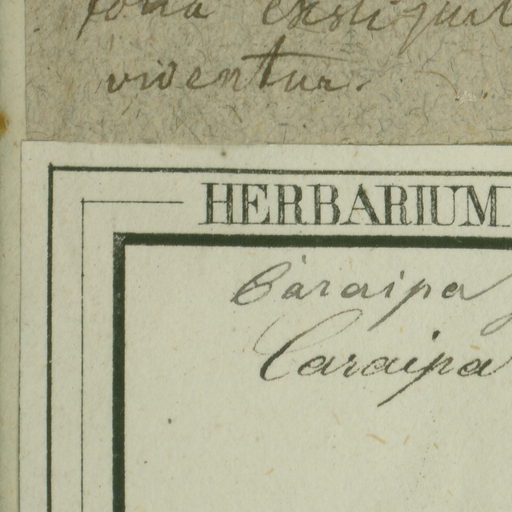 videntur.
HERBARIUM
Caraipa
Caraipa